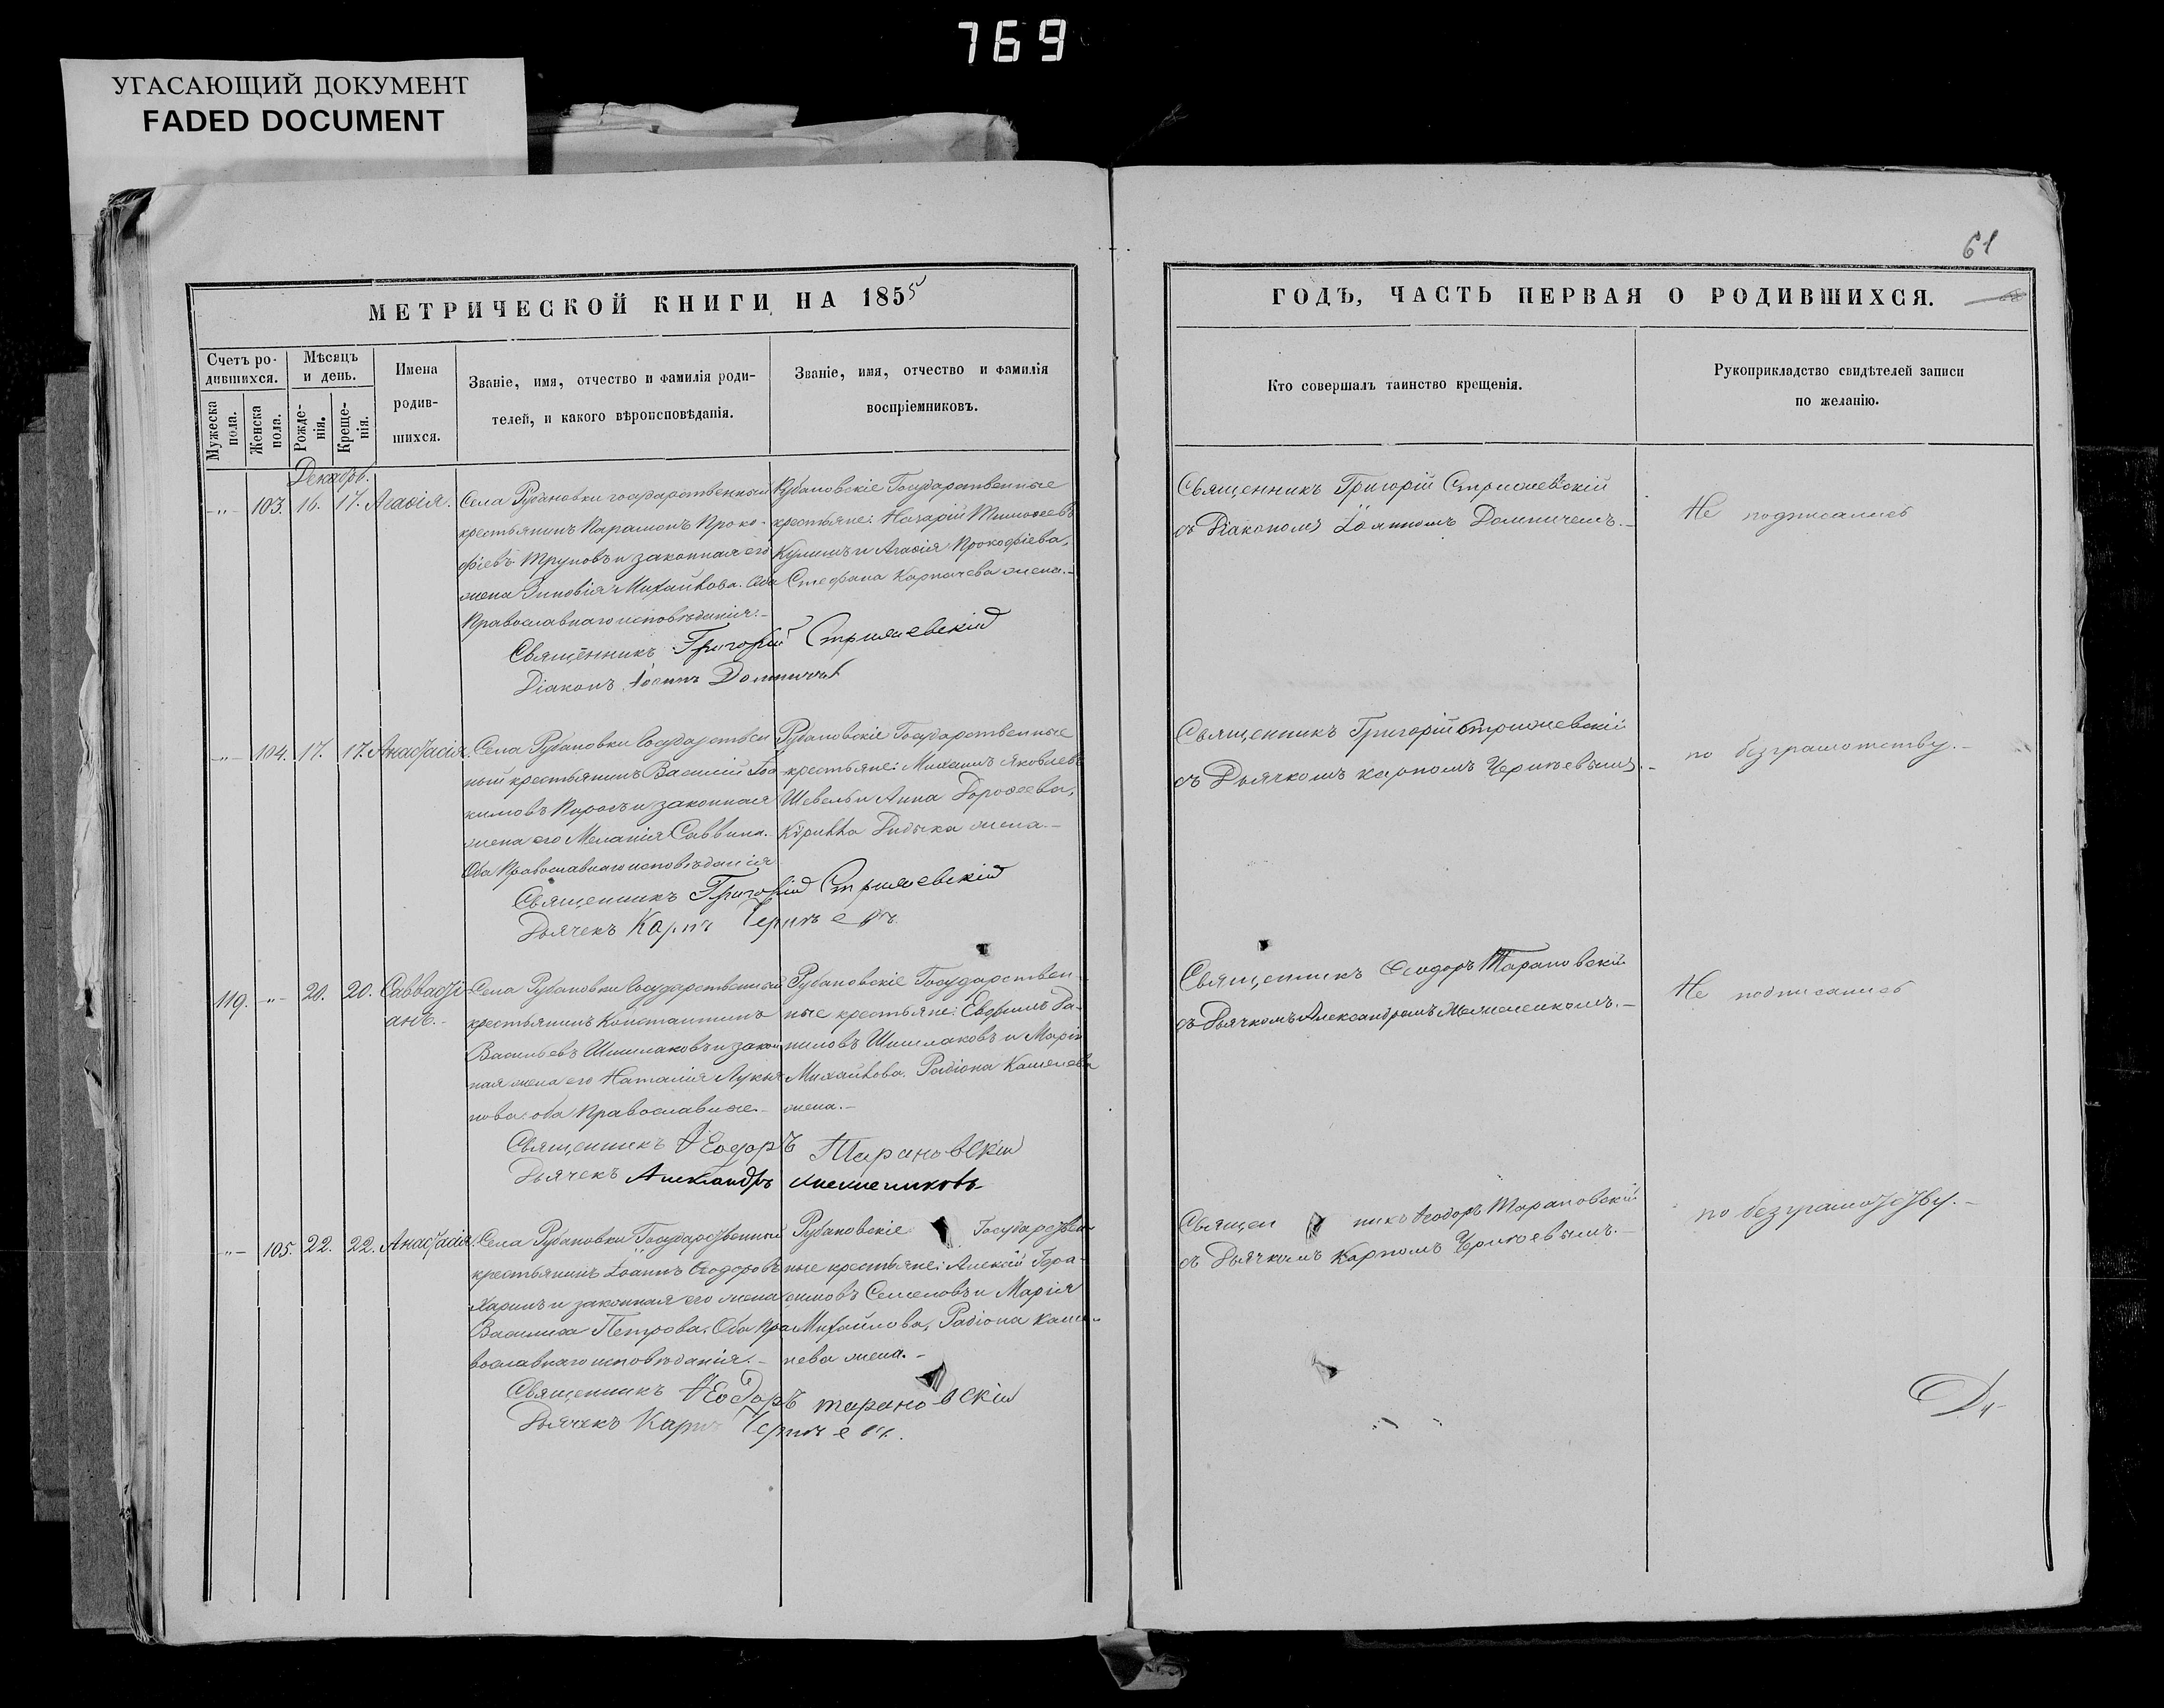 769
УГАСАЮЩИЙ ДОКУМЕНТ
FADED DOCUMENT
61
МЕТРИЧЕСКОЙ КНИГИ НА 1855
Счетъ ро-
дившихся.
Мужеска
пола.
Женска
пола.
Мѣсяцъ
и день.
Рожде-
нія.
Креще-
нія.
Имена
родив-
шихся.
Званіе, имя, отчество и фамилія роди-
телей, и какого вѣроисповѣданія.
Званіе, имя, отчество и фамилія
воспріемниковъ.
ГОДЪ, ЧАСТЬ ПЕРВАЯ О РОДИВШИХСЯ.
Кто совершалъ таинство крещенія.
Рукоприкладство свидѣтелей записи
по желанію.
Декабрь.
-„- 103. 16. 17. Агаѳія.
Села Рубановки государственный
крестьянинъ Парамонъ Проко-
фіевъ Труновъ и законная его
жена Зиновія Михайлова. Оба
Православнаго исповѣданія.-
Рубановскіе Государственные
крестьяне: Назарій Тимоѳеевъ
Кулишъ и Агаѳія Прокофіева,
Стефана Карпачева жена.-
Священникъ Григорій Стрижевскій
Діаконъ Іоаннъ Домничъ
Священникъ Григорій Стрижевскій
съ Діакономъ Іоанномъ Домничемъ.-
Не подписались
-„- 104. 17. 17. Анастасія.
Села Рубановки Государствен
ный крестьянинъ Василій Іоа
кимовъ и законная
жена его Меланія Саввина.
Оба Православнаго исповѣданія
Рубановскіе Государственные
крестьяне: Яковлевъ
Шевель и Анна Дороѳеева,
Кирилла Дидыка жена.-
Священникъ Григорій Стрижевскій
Дьячекъ Карпъ
Священникъ Григорій Стрижевскій
съ Дьячкомъ Карпомъ
по безграмотству.-
119. -„- 20. 20. Савватi-
анъ.-
Села Рубановки Государственный
крестьянинъ Константинъ
Васильевъ Шишлаковъ и закон
ная жена его Наталія Лукья
нова. оба Православные.-
Рубановскіе Государствен-
ные крестьяне: Евфимъ Да-
ниловъ Шишлаковъ и Марія
Михайлова, Радіона Кашенева
жена.-
Священникъ Ѳеодоръ Тарановскій
Дьячекъ Александръ
Священникъ Ѳеодоръ Тарановскій
съ Дьячкомъ Александромъ
Не подписались
-„- 105. 22. 22. Анастасія.
Села Рубановки Государственный
крестьянинъ Іоаннъ Ѳеодоровъ
Харинъ и законная его жена
Василиса Петрова. Оба Пра
вославнаго исповѣданія.-
Рубановскіе Государствен-
ные крестьяне: Алексій Гера-
симовъ Семеновъ и Марія
Михайлова, Радіона Каше-
нева жена.-
Священникъ Ѳеодоръ Тарановскій
Дьячекъ Карпъ
Священникъ Ѳеодоръ Тарановскій
съ Дьячкомъ Карпомъ
по безграмотству.-